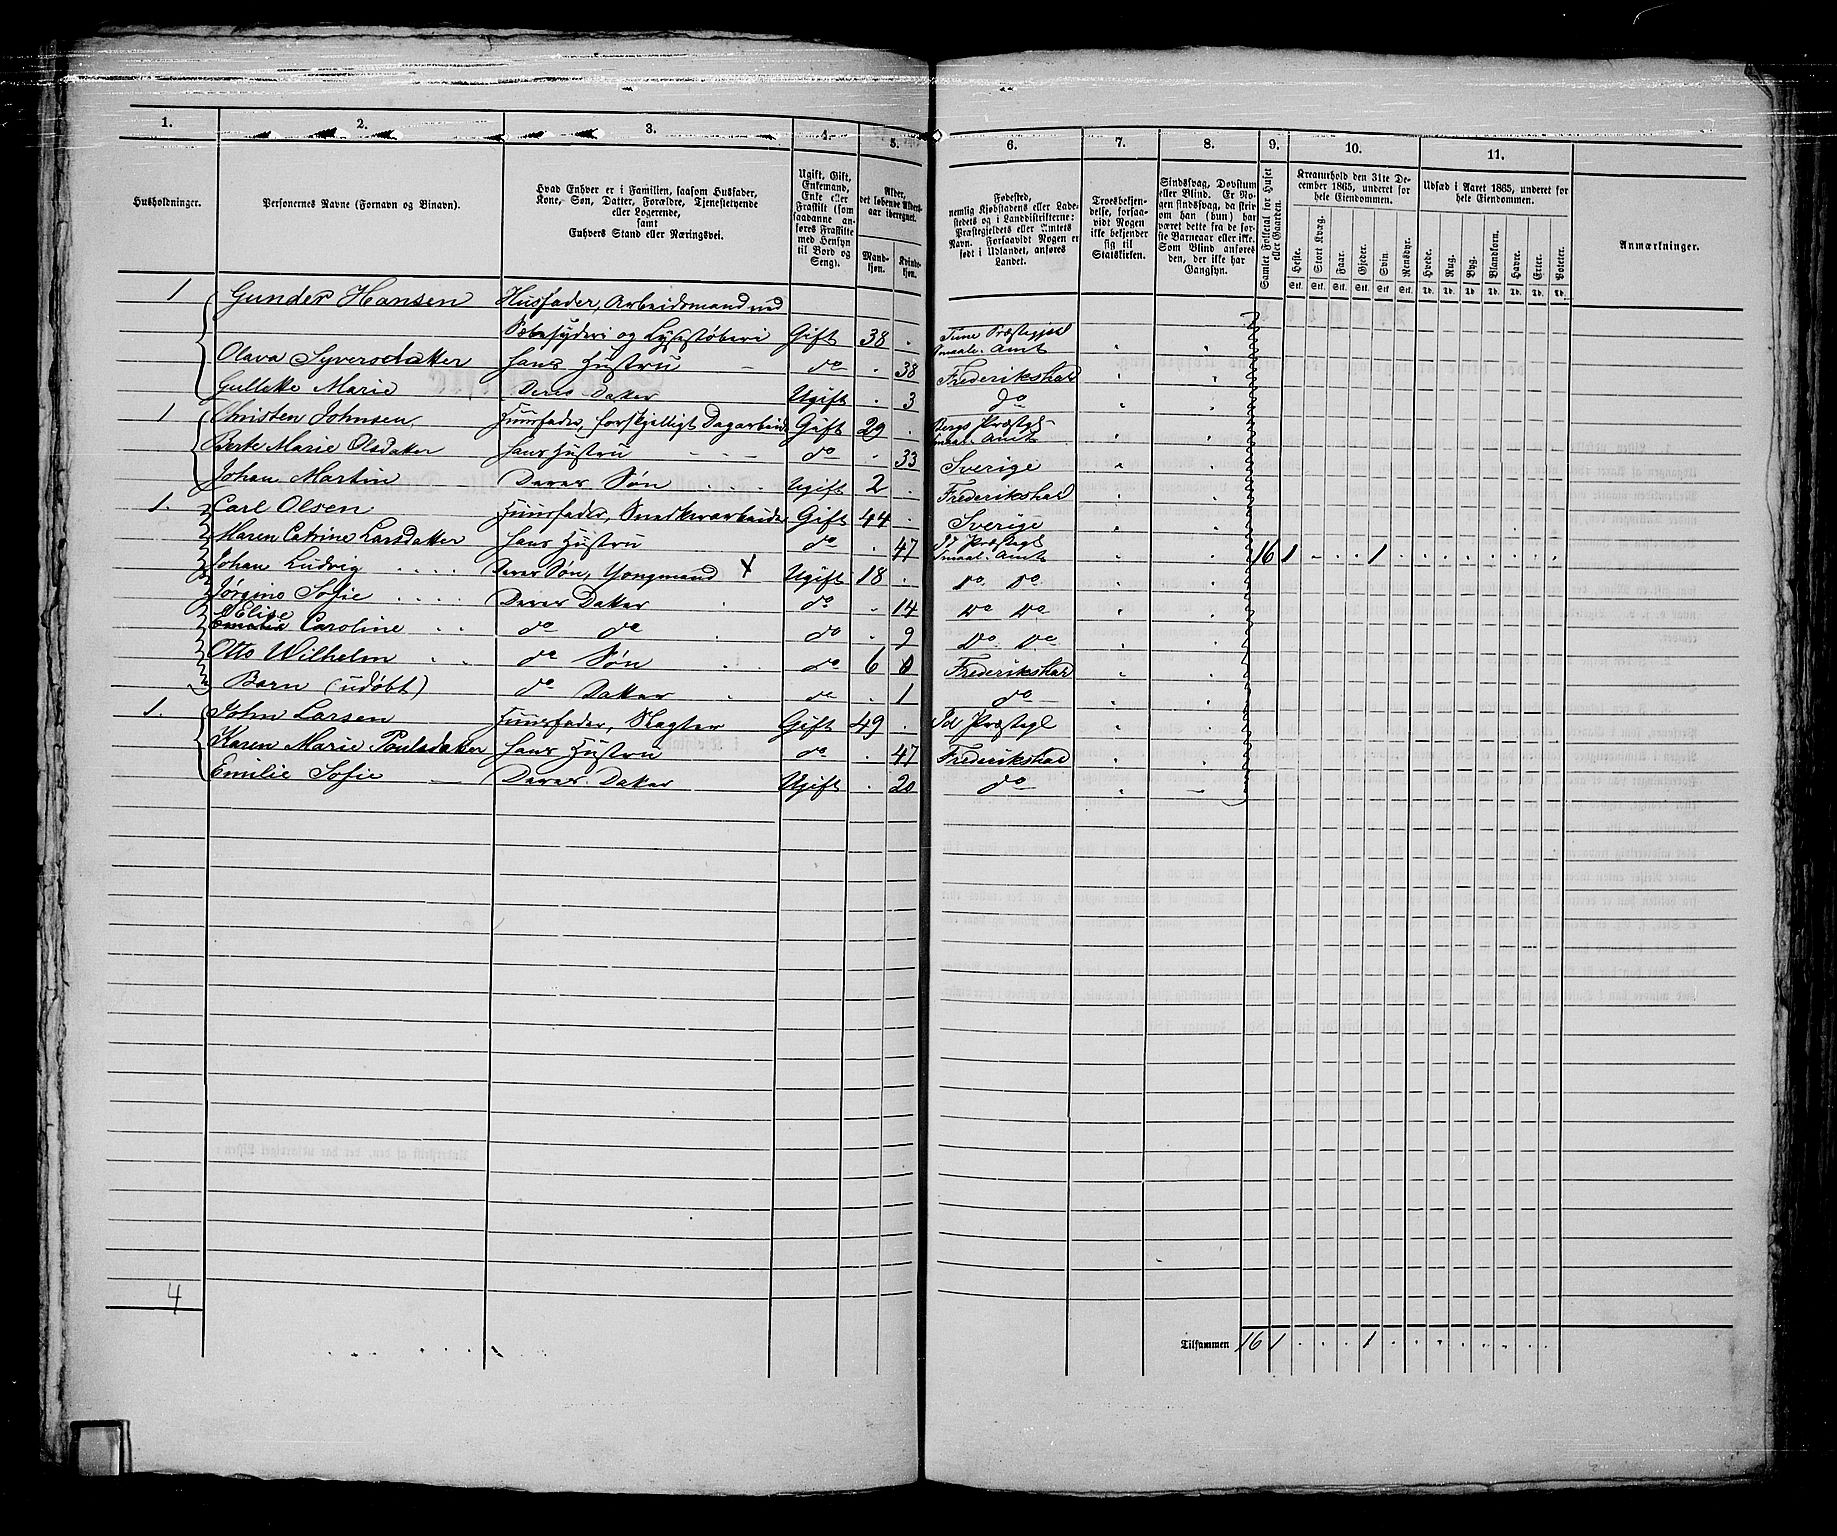 1. 2. 3. 4. 5. 6. 7. 8. 9. 10. 11.
Husholdninger.
Personernes Navne (Fornavn og Binavn).
Hvad Enhver er i Familien, saasom Husfader,
Kone, Søn, Datter, Forældre, Tjenestetyende
eller Logerende,
samt
Enhvers Stand eller Næringsvei.
Ugift, Gift,
Enkemand,
Enke eller
Fraskilt (som
saadanne an-
føres Fraskilte
med Hensyn
til Bord og
Seng).
Alder,
det løbende Alders-
aar iberegnet.
Mand-
kjøn.
Kvinde-
kjøn.
Fødested,
nemlig Kjøbstadens eller Lade-
stedets og i Landdistrikterne:
Præstegjeldets eller Amtets
Navn. Forsaavidt Nogen er
født i Udlandet, anføres
Landet.
Troesbekjen-
delse, forsaa-
vidt Nogen
ikke bekjender
sig til
Statskirken.
Sindssvag, Døvstum
eller Blind. Er No-
gen sindssvag, da skriv
om han (hun) har
været dette fra de før-
ste Barneaar eller ikke.
Som Blind anføres
den, der ikke har
Gangsyn.
Samlet Folketal for Huset
eller Gaarden.
Kreaturhold den 31te De-
cember 1865, underet for
hele Eiendommen.
Heste. Stort Kvæg. Faar. Gjeder. Svin. Rensdyr.
Stk. Stk. Stk. Stk. Stk. Stk.
Udsæd i Aaret 1865, underet for
hele Eiendommen.
Hvede. Rug. Byg. Blandkorn. Havre. Erter. Poteter.
Td. Td. Td. Td. Td. Td. Td.
Anmærkninger.
1 Gunder Hansen Husfader, Arbeidsmand ved
Sæbesyderi og Lysestøberi Gift 38 . Tune Præstegjæld Smaale. Amt
Olava Syversdatter Hans Hustru do . 38 Frederikshald
Gullekke Marie Deres Datter Ugift . 3 do
1 Christen Johnsen Huusfader, forskjelligt Dagarbeide Gift 29 . Bergs Præstegl Smaal. Amt
Berte Marie Olsdatter Hans Hustru do . 33 Sverige
Johan Martin Deres Søn Ugift 2 . Frederikshald
1. Carl Olsen Huusfader, Snedkerarbeider Gift 44 . Sverige
Maren Catrine Larsdatter Hans Hustru do . 47 Id Præstegl Smaal. Amt 16 1 - . . 1
Johan Ludvig Deres Søn, Yongmand X Ugift 18 . do do
Jørgine Sofie Deres Datter do . 14 do do
Elise
Caroline do do do . 9 do do
Otto Wilhelm do Søn do 6 Frederikshald
Barn (udøbt) do Datter do . 1 do
1. John Larsen Huusfader, Slagter Gift 49 . Id Præstegl
Karen Marie Poulsdatter Hans Hustru do . 47 Frederikshald
Emilie Sofie Deres Datter Ugift . 20 do
4
Tilsammen 16 1 . . . 1